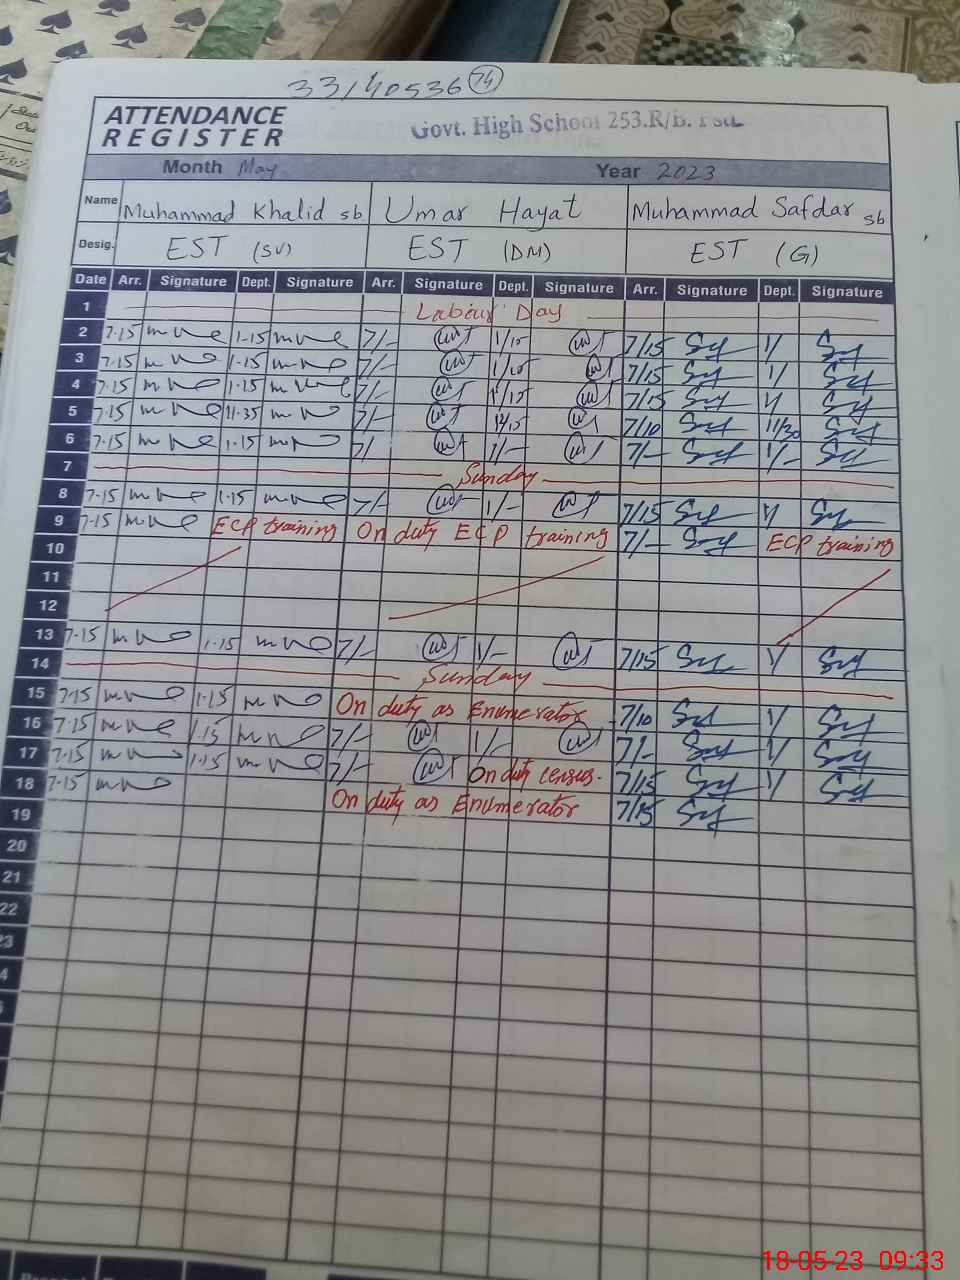 33140536 74
ATTENDANCE REGISTER
Govt. High School 253.R/B. Fsd.
Month May Year 2023
Name Muhammad Khalid sb Umar Hayat Muhammad Safdar sb
Desig. EST (SV) EST (DM) EST (G)
Date Arr. Signature Dept. Signature Arr. Signature Dept. Signature Arr. Signature Dept. Signature
1 Labour Day
2 7-15 1-15 7/- 1/15 7/15 1/
3 7-15 1-15 7/- 1/15 7/15 1/
4 7-15 1-15 7/- 1/15 7/15 1/
5 7-15 11-35 7/- 7/10 11/30
6 7-15 1-15 7/- 1/- 7/- 1/-
7 Sunday
8 7-15 1-15 7/- 1/- 7/15 1/
9 7-15 ECP training On duty ECP training 7/- ECP training
10
11
12
13 7-15 1-15 7/- 1/- 7/15 1/
14 Sunday
15 7-15 1-15 On duty as Enumerator 7/10 1/
16 7-15 1-15 7/- 1/- 7/- 1/
17 7-15 1-15 7/- On duty census. 7/15 1/
18 7-15 On duty as Enumerator 7/15
19
20
21
22
23
4
18-05-23 09:33